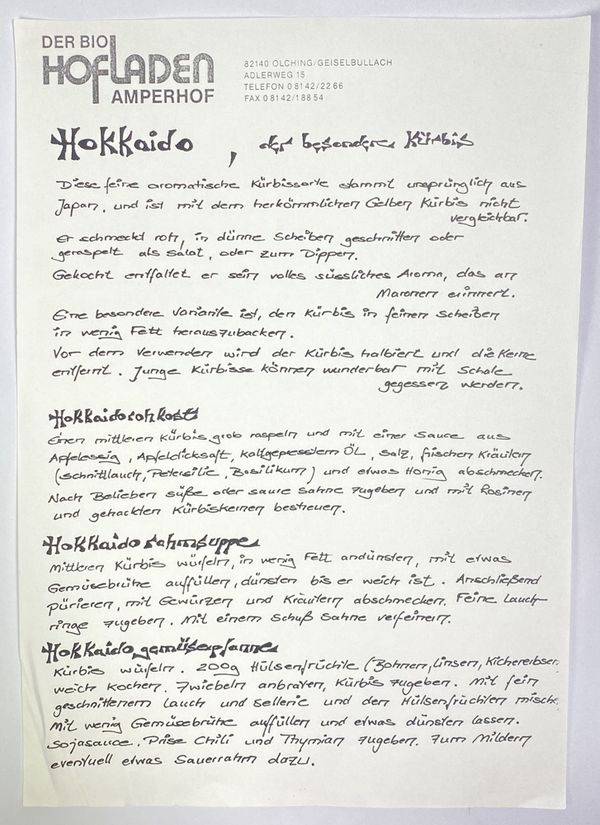 DER BIO
HOFLADEN
AMPERHOF
82140 OLCHING/GEISELBULLACH
ADLERWEG 15
TELEFON 0 81 42/22 66
FAX 0 81 42/1 88 54
Hokkaido, der besondere Kürbis
Diese feine aromatische Kürbissorte stammt ursprünglich aus
Japan, und ist mit dem herkömmlichen Gelben Kürbis nicht
vergleichbar.
Er schmeckt roh, in dünne Scheiben geschnitten oder
geraspelt als Salat, oder zum Dippen.
Gekocht entfaltet er sein volles süssliches Aroma, das an
Maronen erinnert.
Eine besondere Variante ist, den Kürbis in feinen Scheiben
in wenig Fett herauszubacken.
Vor dem Verwenden wird der Kürbis halbiert und die Kerne
entfernt. Junge Kürbisse können wunderbar mit Schale
gegessen werden.
Hokkaidorohkost
Einen mittleren Kürbis grob raspeln und mit einer Sauce aus
Apfelessig, Apfeldicksaft, kaltgepresstem ÖL, Salz, frischen Kräutern
(Schnittlauch, Petersilie, Basilikum) und etwas Honig abschmecken.
Nach Belieben süße oder saure Sahne zugeben und mit Rosinen
und gehackten Kürbiskernen bestreuen.
Hokkaidorahmsuppe
Mittleren Kürbis würfeln, in wenig Fett andünsten, mit etwas
Gemüsebrühe auffüllen, dünsten bis er weich ist. Anschließend
pürieren, mit Gewürzen und Kräutern abschmecken. Feine Lauch-
ringe zugeben. Mit einem Schuß Sahne verfeinern.
Hokkaidogemüsepfanne
Kürbis würfeln. 200g Hülsenfrüchte (Bohnen, Linsen, Kichererbsen
weich kochen. Zwiebeln anbraten, Kürbis zugeben. Mit fein
geschnittenem Lauch und Sellerie und den Hülsenfrüchten misch
Mit wenig Gemüsebrühe auffüllen und etwas dünsten lassen.
Sojasauce, Prise Chili und Thymian zugeben. Zum Mildern
eventuell etwas Sauerrahm dazu.